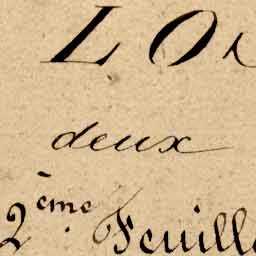 L O
deux
2ème Feuill